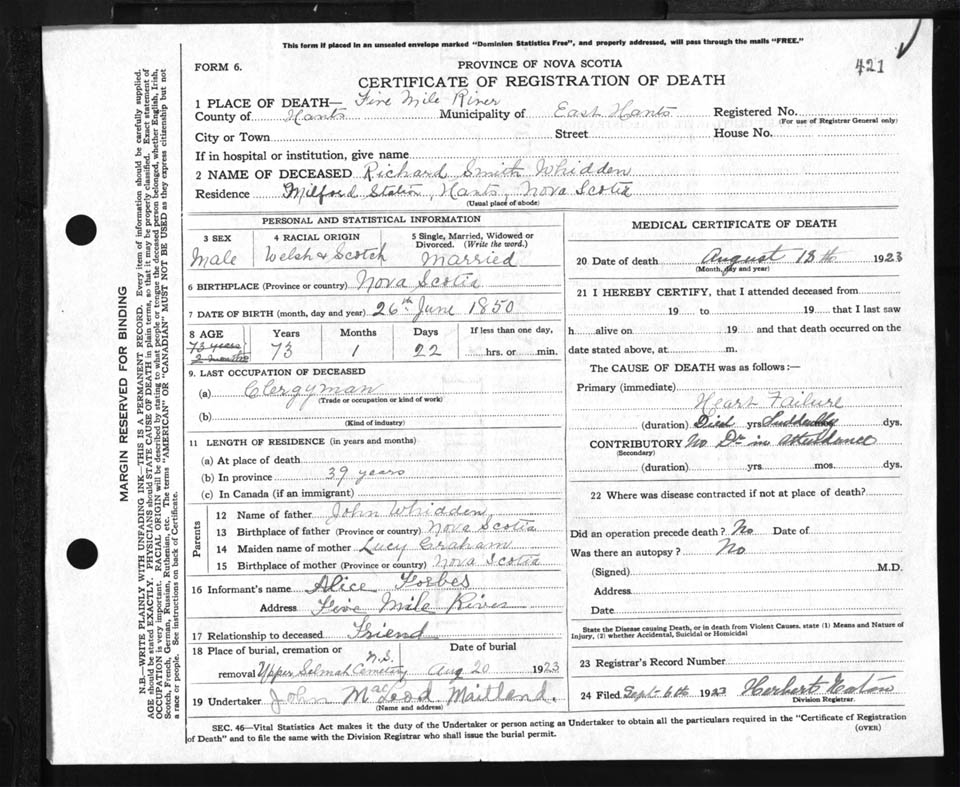 This form if placed in an unsealed envelope marked "Dominion Statistics Free", and properly addressed, will pass through the mails "FREE."
421
FORM 6.
PROVINCE OF NOVA SCOTIA
CERTIFICATE OF REGISTRATION OF DEATH
1 PLACE OF DEATH— Five Mile River
County of Hants Municipality of East Hants Registered No.
(For use of Registrar General only)
City or Town Street House No.
If in hospital or institution, give name
2 NAME OF DECEASED Richard Smith Whidden
Residence Milford Station, Hants, Nova Scotia
(Usual place of abode)
PERSONAL AND STATISTICAL INFORMATION
3 SEX 4 RACIAL ORIGIN 5 Single, Married, Widowed or Divorced. (Write the word.)
Male Welsh & Scotch Married
6 BIRTHPLACE (Province or country) Nova Scotia
7 DATE OF BIRTH (month, day and year) 26th June 1850
8 AGE Years Months Days If less than one day,
73 years
2 months
73 1 22 hrs. or min.
9. LAST OCCUPATION OF DECEASED
(a) Clergyman
(Trade or occupation or kind of work)
(b)
(Kind of industry)
11 LENGTH OF RESIDENCE (in years and months)
(a) At place of death
(b) In province 39 years
(c) In Canada (if an immigrant)
Parents
12 Name of father John Whidden
13 Birthplace of father (Province or country) Nova Scotia
14 Maiden name of mother Lucy Graham
15 Birthplace of mother (Province or country) Nova Scotia
16 Informant's name Alice Forbes
Address Five Mile River
17 Relationship to deceased Friend
18 Place of burial, cremation or removal Date of burial
Upper Selmah Cemetery N.S. Aug 20 1923
19 Undertaker John MacLeod Maitland.
(Name and address)
MEDICAL CERTIFICATE OF DEATH
20 Date of death August 18th 1923
(Month, day and year)
21 I HEREBY CERTIFY, that I attended deceased from
19 to 19 that I last saw
h alive on 19 and that death occurred on the
date stated above, at m.
The CAUSE OF DEATH was as follows:—
Primary (immediate)
Heart Failure
(duration) Died yrs Suddenly dys.
CONTRIBUTORY No Dr in attendance
(Secondary)
(duration) yrs. mos. dys.
22 Where was disease contracted if not at place of death?
Did an operation precede death? No Date of
Was there an autopsy? No
(Signed) M.D.
Address
Date
State the Disease causing Death, or in death from Violent Causes, state (1) Means and Nature of
Injury, (2) whether Accidental, Suicidal or Homicidal
23 Registrar's Record Number
24 Filed Sept 6th 1923 Herbert Eaton
Division Registrar.
SEC. 46—Vital Statistics Act makes it the duty of the Undertaker or person acting as Undertaker to obtain all the particulars required in the "Certificate of Registration
of Death" and to file the same with the Division Registrar who shall issue the burial permit.
(OVER)
MARGIN RESERVED FOR BINDING
N.B—WRITE PLAINLY WITH UNFADING INK—THIS IS A PERMANENT RECORD. Every item of information should be carefully supplied.
AGE should be stated EXACTLY. PHYSICIANS should STATE CAUSE OF DEATH in plain terms, so that it may be properly classified. Exact statement of
OCCUPATION is very important. RACIAL ORIGIN will be described by stating to what people or tongue the deceased person belonged, whether English, Irish,
Scotch, French, German, Russian, Ruthenian, etc. The terms "AMERICAN" OR "CANADIAN" MUST NOT BE USED as they express citizenship but not
a race or people. See instructions on back of Certificate.